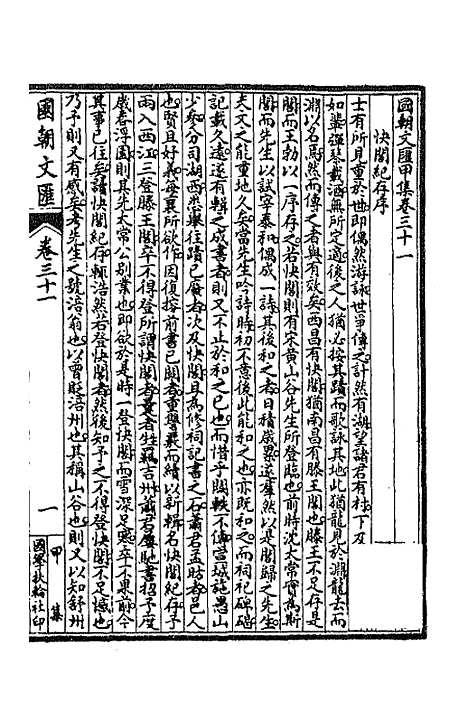 國朝文匯甲集卷三十一
快閣紀存序
士有所見重於世即偶然游詠世爭傳之計然有湖望諸君有村下及
如輩選琴載酒無所定適後之人猶必按其蹟而歌詠其地此猶龍見於淵龍去而
淵以名焉然而傳之者與有效矣西昌有快閣猶南昌有滕王閣也滕王不足存是
閣而王勃以一序存之若快閣則有宋黃山谷先生所登臨也前時沈太常嘗爲斯
閣而先生以試宰泰和偶成一詩其後和之者日積歲累遂羣然以是閣歸之先生
夫文之能重地久矣當先生吟詩時初不意後此能和之也亦既和之而祠祀碑碣
記載久遠遂有輯之成書者則又不止於和之已也而惜乎闕軼不傳當越施愚山
少參分司湖西悉舉往蹟已廢者次及快閣且爲修祠記書之石蕭君孟昉者邑人
也賢且好義毎襄所欲作因復搜前書已闕者重譽纂而續以新輯名快閣紀存予
兩入西江三登滕王閣卒不得登所謂快閣者曩者駐驂吉州蕭君屢馳書招予度
歲春浮園則其先太常公別業也即欲於是時一登快閣而雪深足憊卒不果前今
其事已往矣讀快閣紀存輒浩然若登快閣者然後知予之不得登快閣不足憾也
乃予則又有感矣者先生之號涪翁也以曾貶涪州也其稱山谷也則又以知舒州
國朝文匯
卷三十一
一
甲集
國學扶輪社印